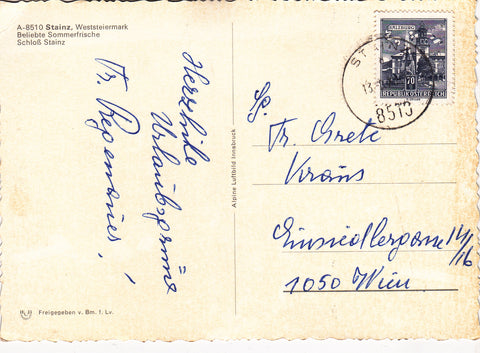 A-8510 Stainz, Weststeiermark
Beliebte Sommerfrische
Schloß Stainz
Herzliche
Urlaubsgrüße
Fr.
Alpine Luftbild Innsbruck
Freigegeben v. Bm. f. Lv.
SALZBURG
70
REPUBLIK ÖSTERREICH
STAINZ
13.
8510
Fr. Grete
Kraus
Einsiedlergasse 14/
/16
1050 Wien